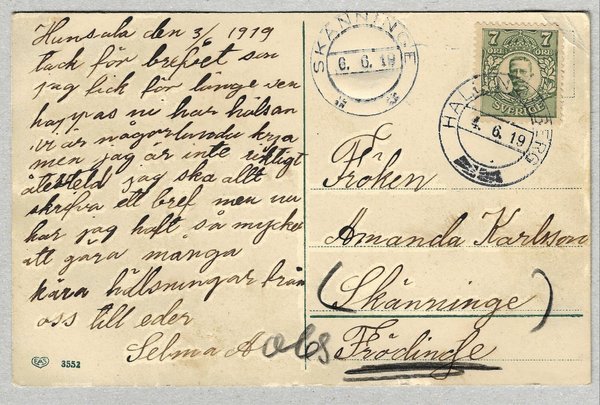 Hunsala den 3/6 1919
tack för brefvet som
jag fick för länge sen
happas ni har hälsan
vi är någorlunda krya
men jag är inte riktigt
återsteld jag ska allt
skrifva ett bref men nu
har jag haft så mycke
att göra många
kära hälsningar från
oss till eder
Selma A
obs
EAS 3552
SKÄNNINGE
6. 6. 19
7 ÖRE 7 ÖRE
SVERIGE
4. 6. 19
Fröken
Amanda Karlsson
(Skänninge)
Frödinge